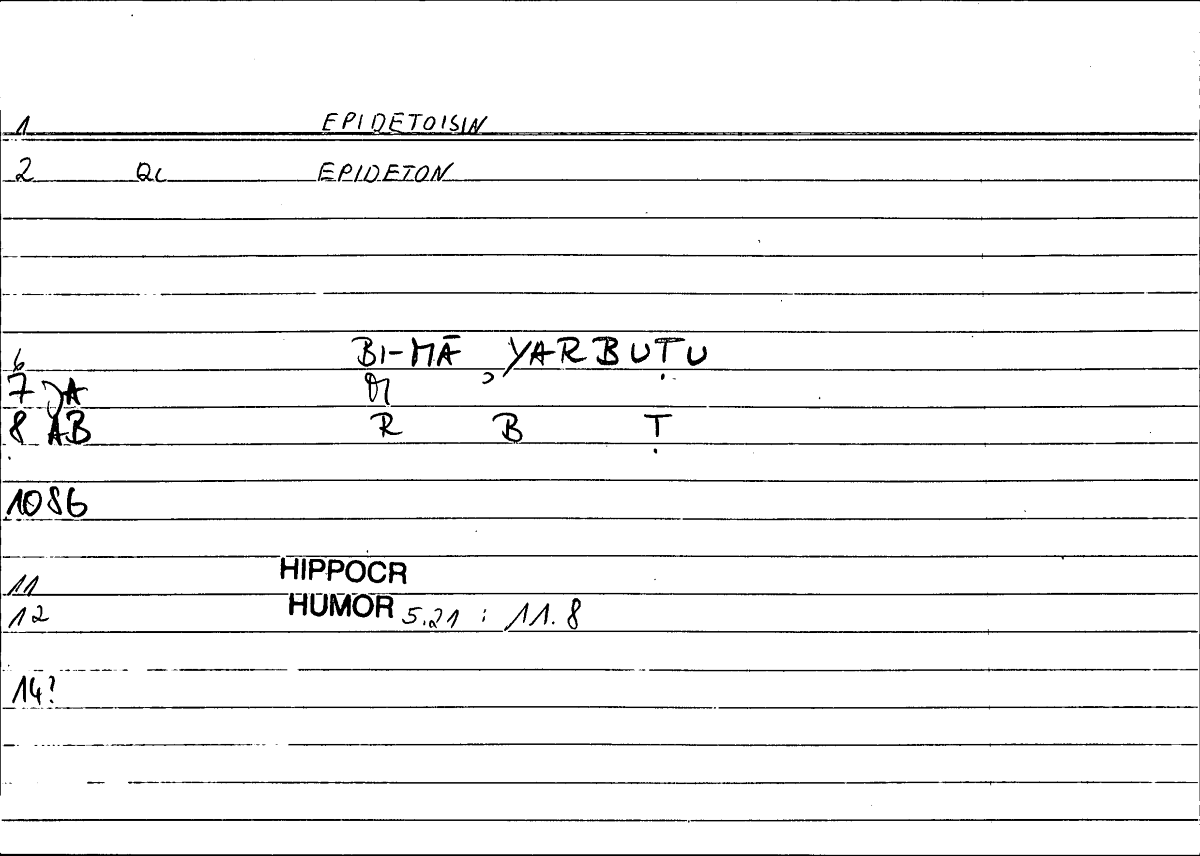 1 EPIDETOISIN
2 Qc EPIDETON
6 BI-MĀ YARBUṬU
7
8 AB R B Ṭ
1086
11 HIPPOCR
12 HUMOR 5.21 : 11.8
14?